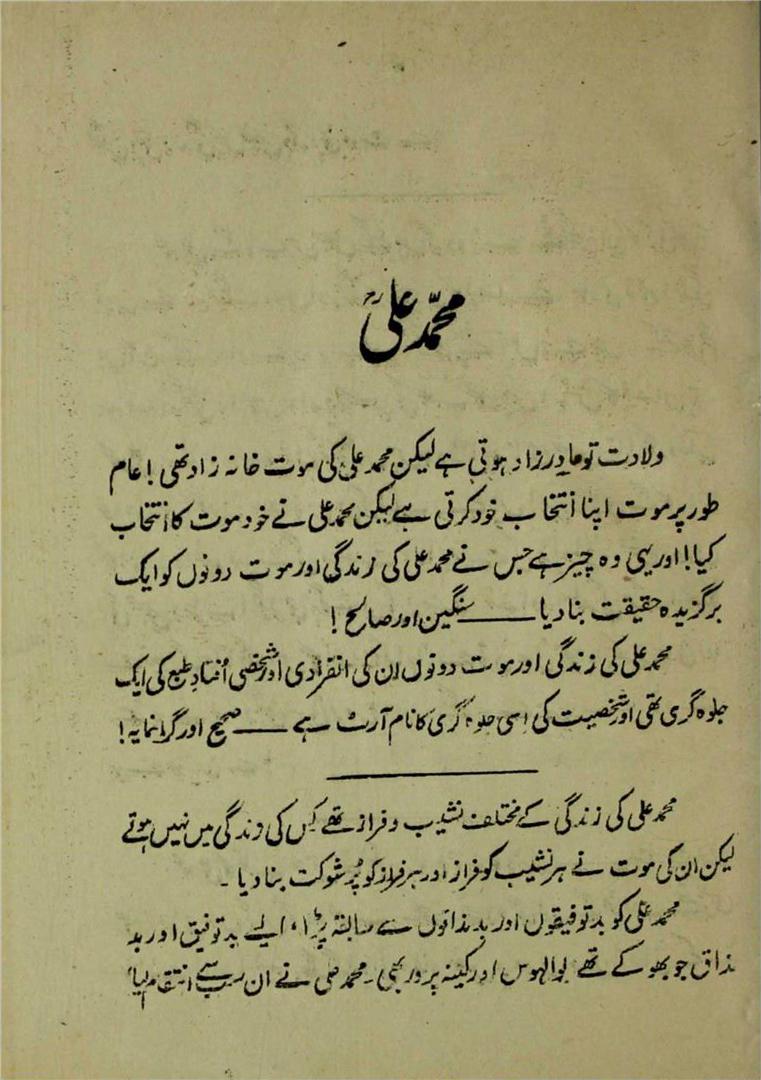 محمد علیؒ
ولادت تو مادر زاد ہوتی ہے لیکن محمد علی کی موت خانہ زاد تھی! عام
طور پر موت اپنا انتخاب خود کرتی ہے لیکن محمد علی نے خود موت کا انتخاب
کیا! اور یہی وہ چیز ہے جس نے محمد علی کی زندگی اور موت دونوں کو ایک
برگزیدہ حقیقت بنا دیا —— سنگین اور صالح!
محمد علی کی زندگی اور موت دونوں ان کی انفرادی اور شخصی اُفتادِ طبع کی ایک
جلوہ گری تھی اور شخصیت کی اسی جلوہ گری کا نام آرٹ ہے —— صحیح اور گرانمایہ!
محمد علی کی زندگی کے مختلف نشیب و فراز تھے کس کی زندگی میں نہیں ہوتے
لیکن ان کی موت نے ہر نشیب کو فراز اور ہر فراز کو پُر شوکت بنا دیا۔
محمد علی کو بد توفیقوں اور بد مذاقوں سے سابقہ پڑا، ایسے بد توفیق اور بد
مذاق جو بھوکے تھے بوالہوس اور کینہ پرور بھی۔ محمد علی نے ان سب سے انتقام لیا